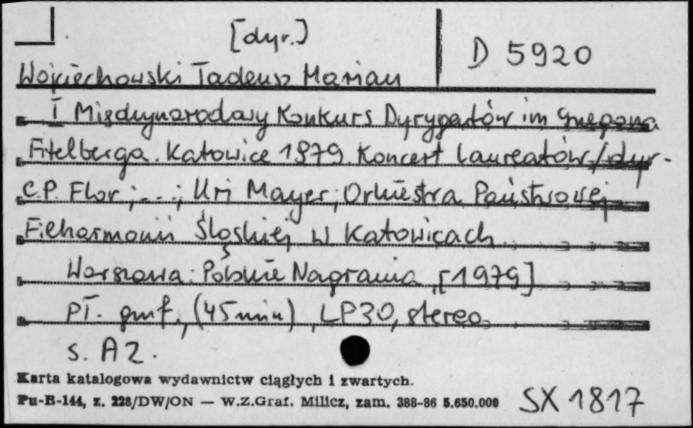 [dyr.]
D 5920
Wojciechowski Tadeusz Marian
I Międzynarodowy Konkurs Dyrygentów im Grzegorza
Fitelberga. Katowice 1979 Koncert laureatów / dyr.
C.P. Flor ; ... ; Uri Mayer ; Orkiestra Państwowej
Filharmonii Śląskiej w Katowicach
Warszawa : Polskie Nagrania, [1979]
pł. gmf., (45 min) , LP30, stereo
s. A 2.
Karta katalogowa wydawnictw ciągłych i zwartych.
Pu-B-144, z. 228/DW/ON — W.Z.Graf. Milicz, zam. 388-86 5.650.000
SX 1817